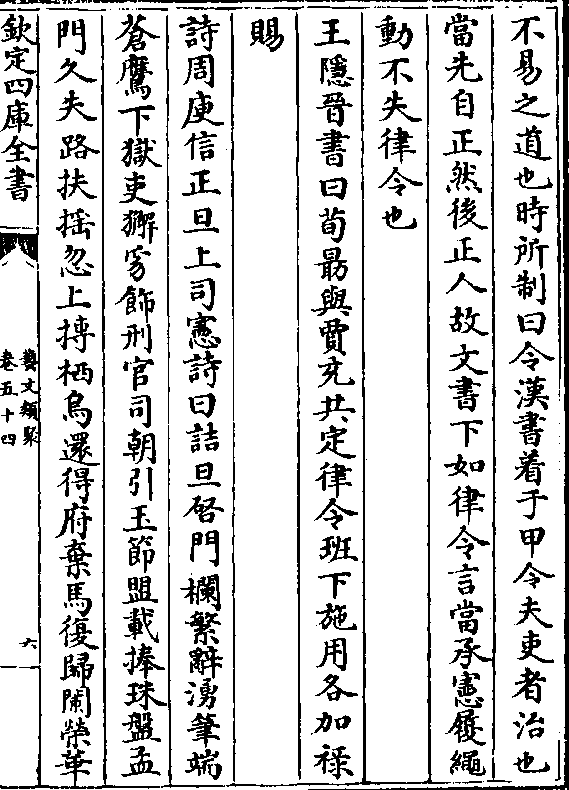 不易之道也時所制曰令漢書着于甲令夫吏者治也
當先自正然後正人故文書下如律令言當承憲履繩
動不失律令也
王隱晉書曰荀勗與賈充共定律令班下施用各加祿
賜
詩周庾信正旦上司憲詩曰詰旦啓門欄繁辭湧筆端
蒼鷹下獄吏獬豸飾刑官司朝引玉節盟載捧珠盤孟
門久失路扶搖忽上摶栖烏還得府棄馬復歸闌榮華
欽定四庫全書
藝文類聚
卷五十四
六